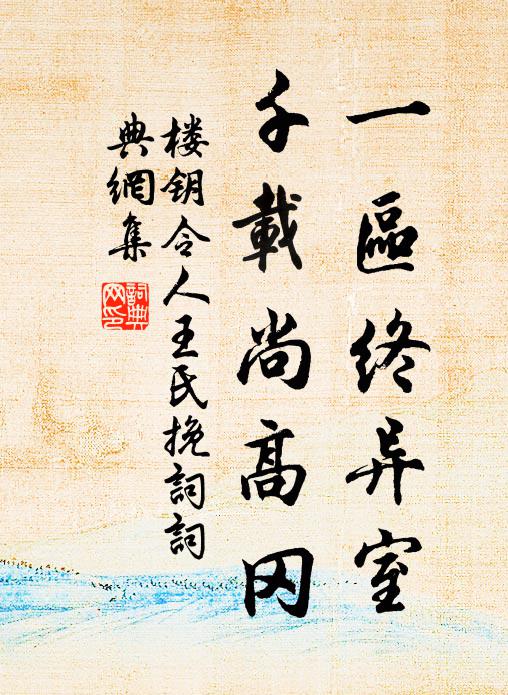 一區終异室
千載尚高冈
楼钥令人王氏挽詞詞
典網集
詞典
网印